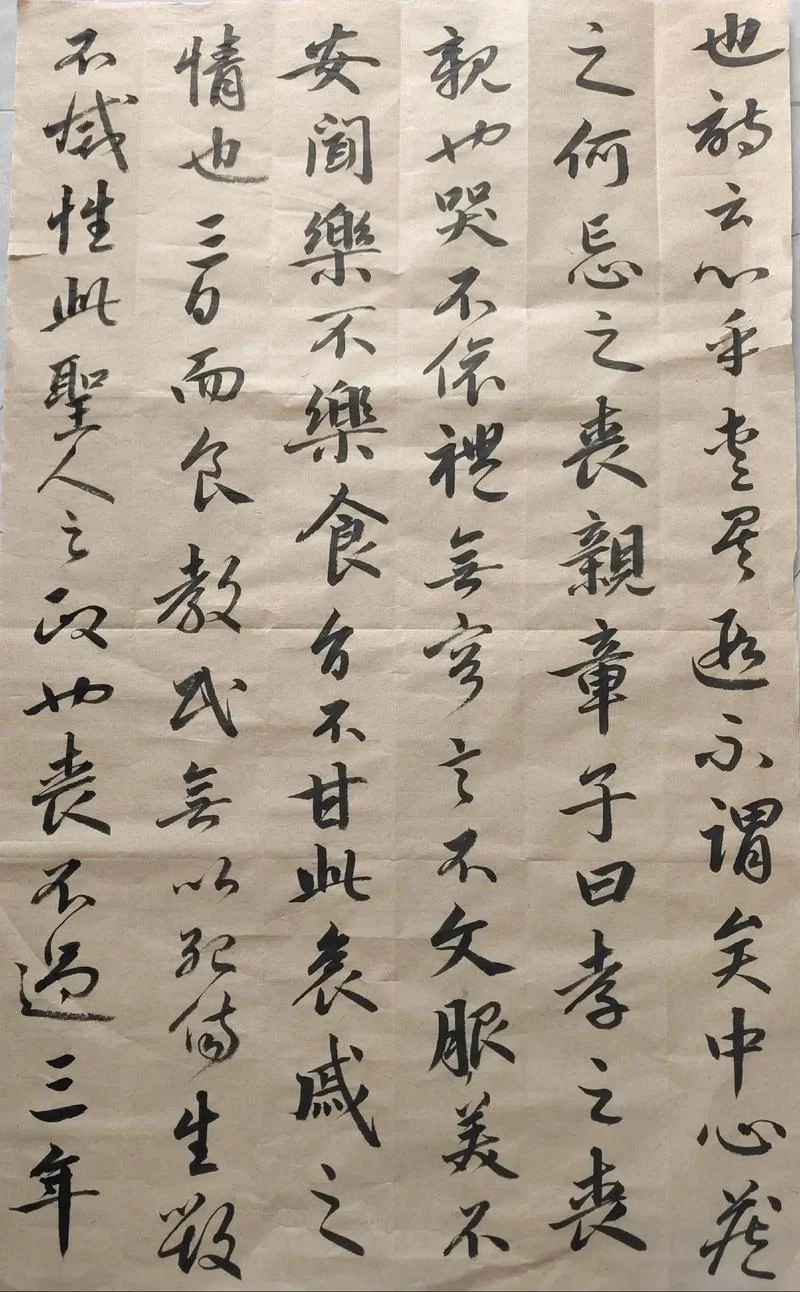 也詩云心乎愛矣遐不謂矣中心藏
之何忘之喪親章子曰孝之喪
親也哭不依禮無容言不文服美不
安聞樂不樂食旨不甘此哀戚之
情也三日而食教民無以死傷生毀
不滅性此聖人之政也喪不過三年